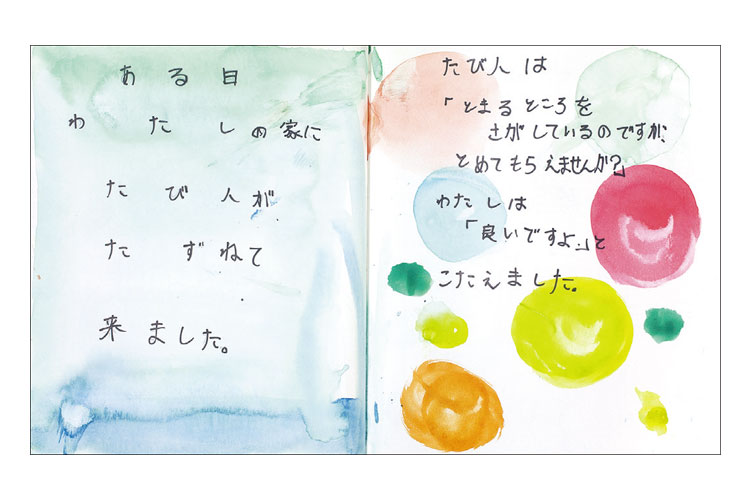 ある日
わたしの家に
たび人が
たずねて
来ました。
たび人は
「とまるところを
さがしているのですが、
とめてもらえませんか?」
わたしは
「良いですよ。」と
こたえました。